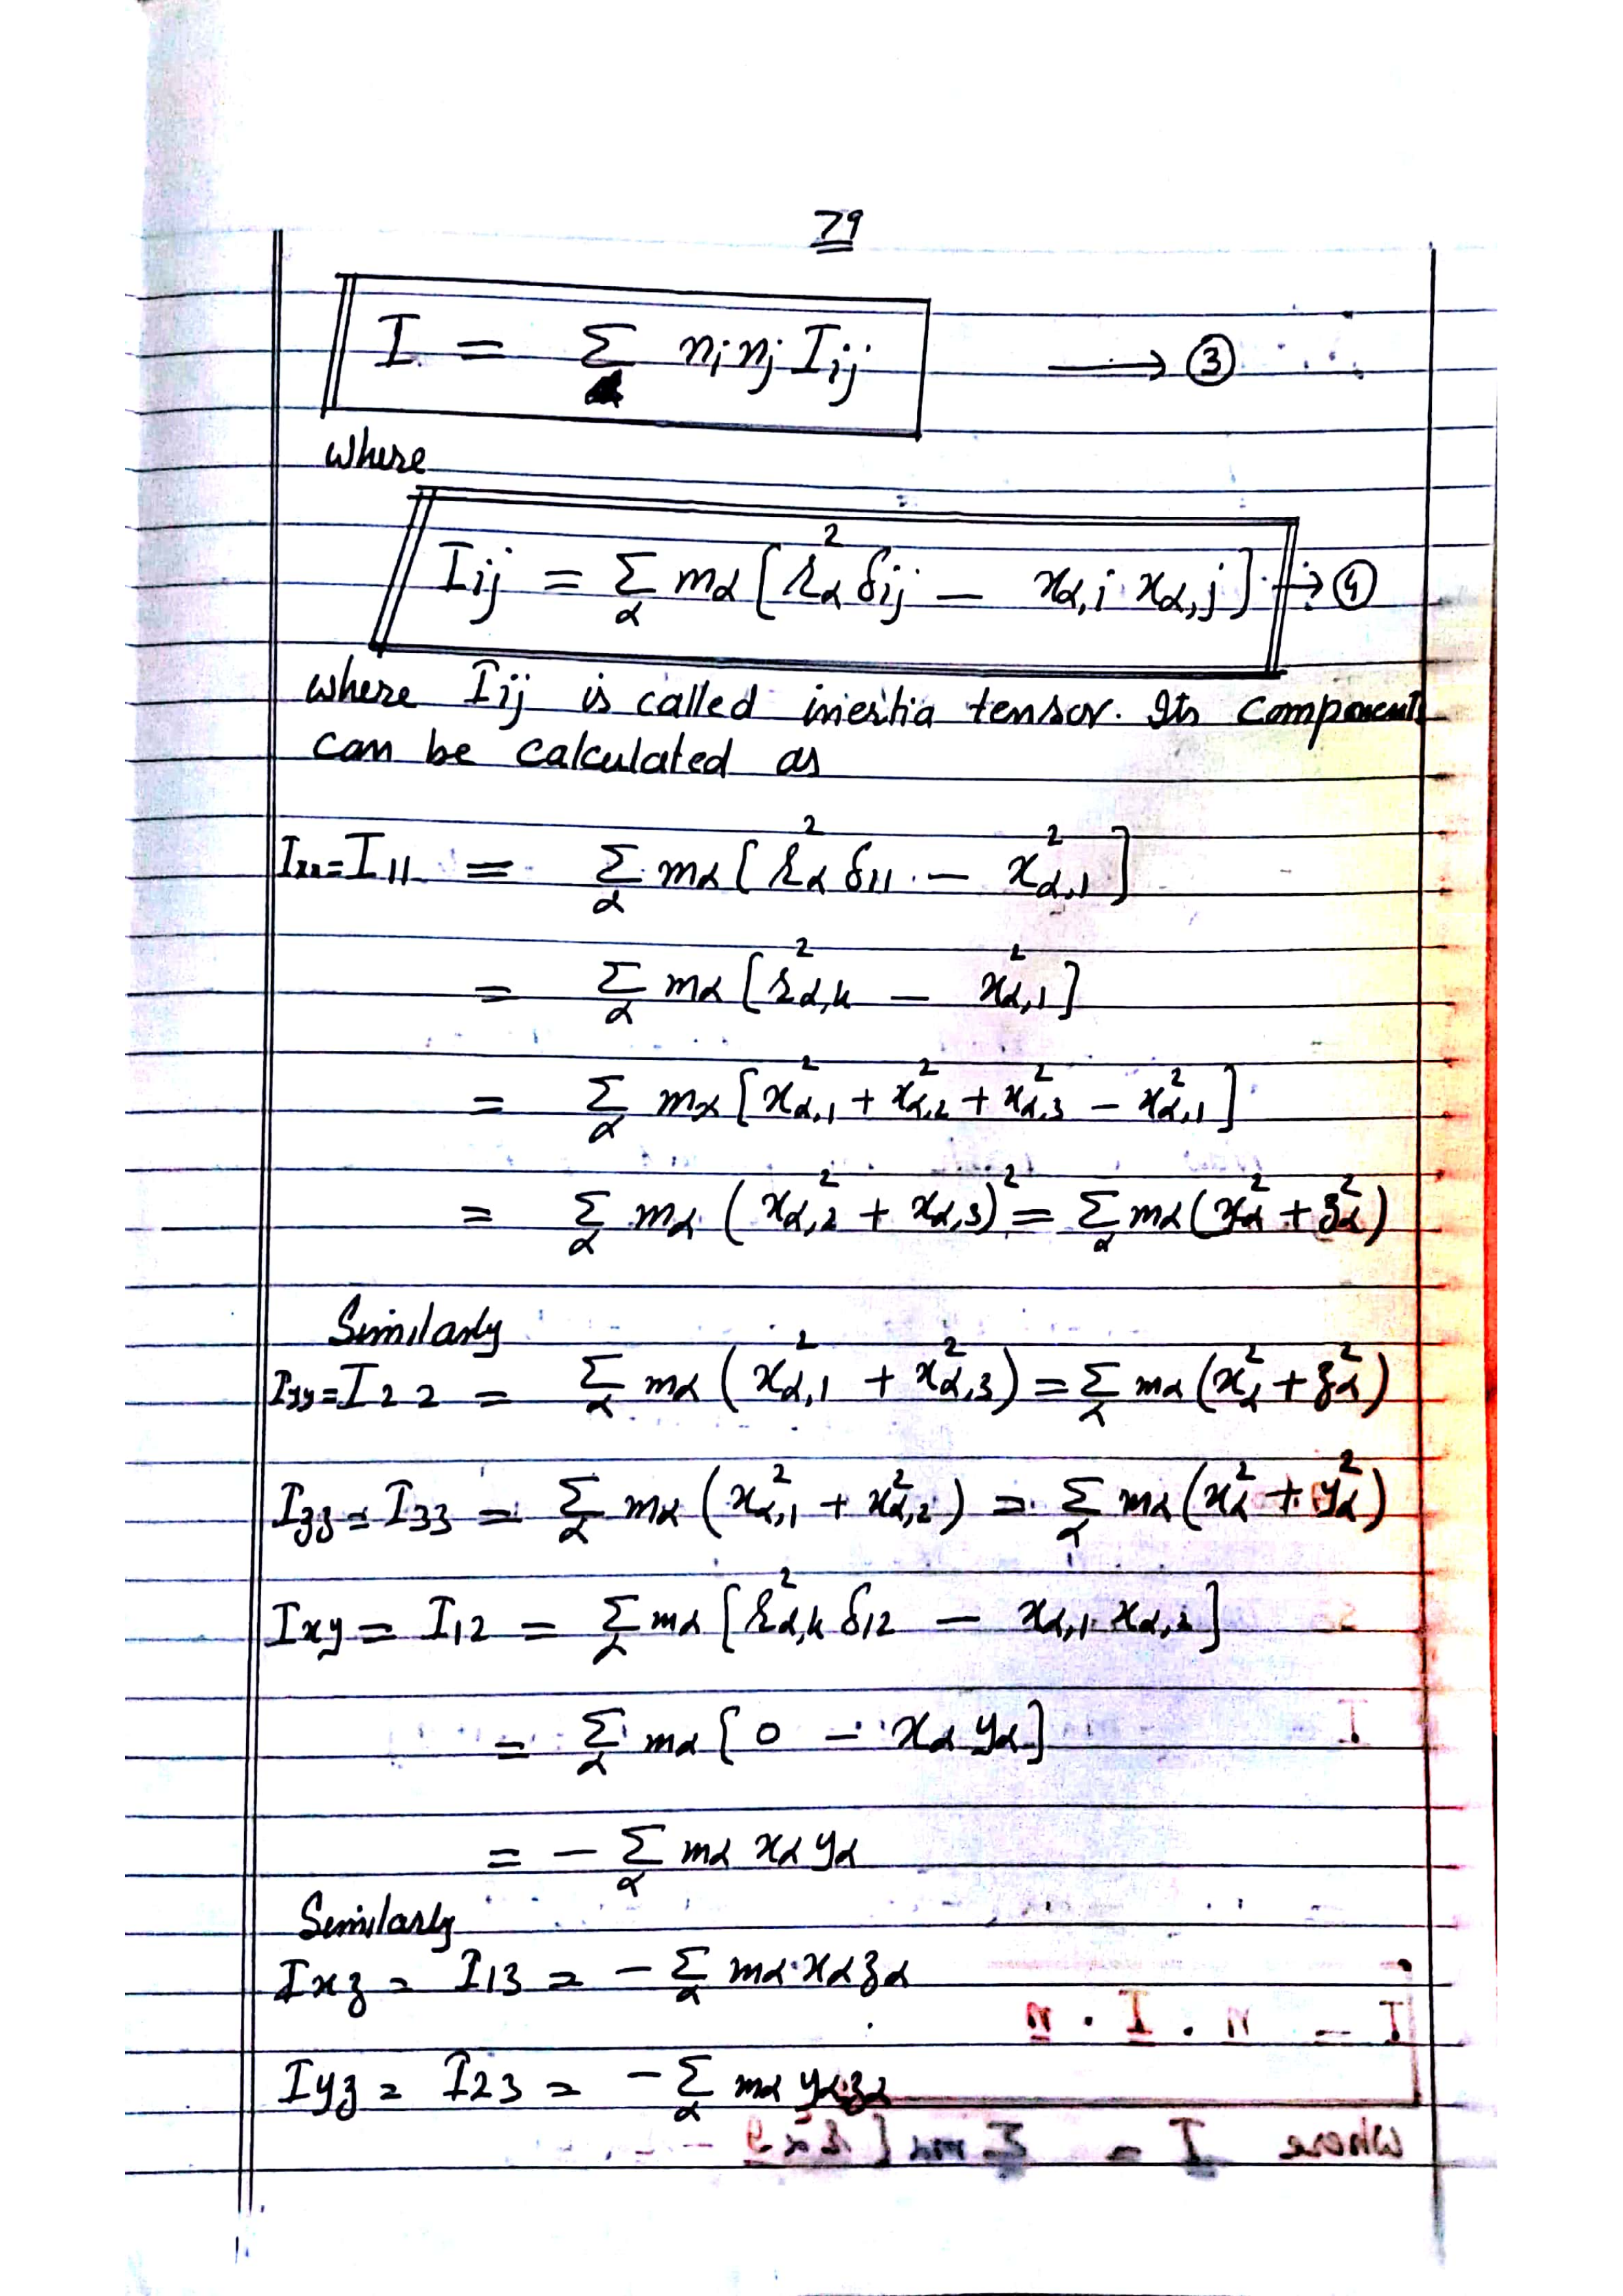 79
I = Σ nᵢ nⱼ Iᵢⱼ → ③
where
Iij = Σ_α mα [r²_α δij − xα,i xα,j] → ④
where Iij is called inertia tensor. Its components
can be calculated as
Ixx = I11 = Σ_α mα [r²_α δ11 − x²_α,1]
= Σ_α mα [r²_α,k − x²_α,1]
= Σ_α mα [x²_α,1 + x²_α,2 + x²_α,3 − x²_α,1]
= Σ_α mα (x²_α,2 + xα,3)² = Σ_α mα (y²_α + z²_α)
Similarly
Iyy = I22 = Σ_α mα (x²_α,1 + x²_α,3) = Σ_α mα (x²_α + z²_α)
Izz = I33 = Σ_α mα (x²_α,1 + x²_α,2) = Σ_α mα (x²_α + y²_α)
Ixy = I12 = Σ_α mα [r²_α,k δ12 − xα,1 xα,2]
= Σ_α mα [0 − xα yα]
= − Σ_α mα xα yα
Similarly
Ixz = I13 = − Σ_α mα xα zα
Iyz = I23 = − Σ_α mα yα zα